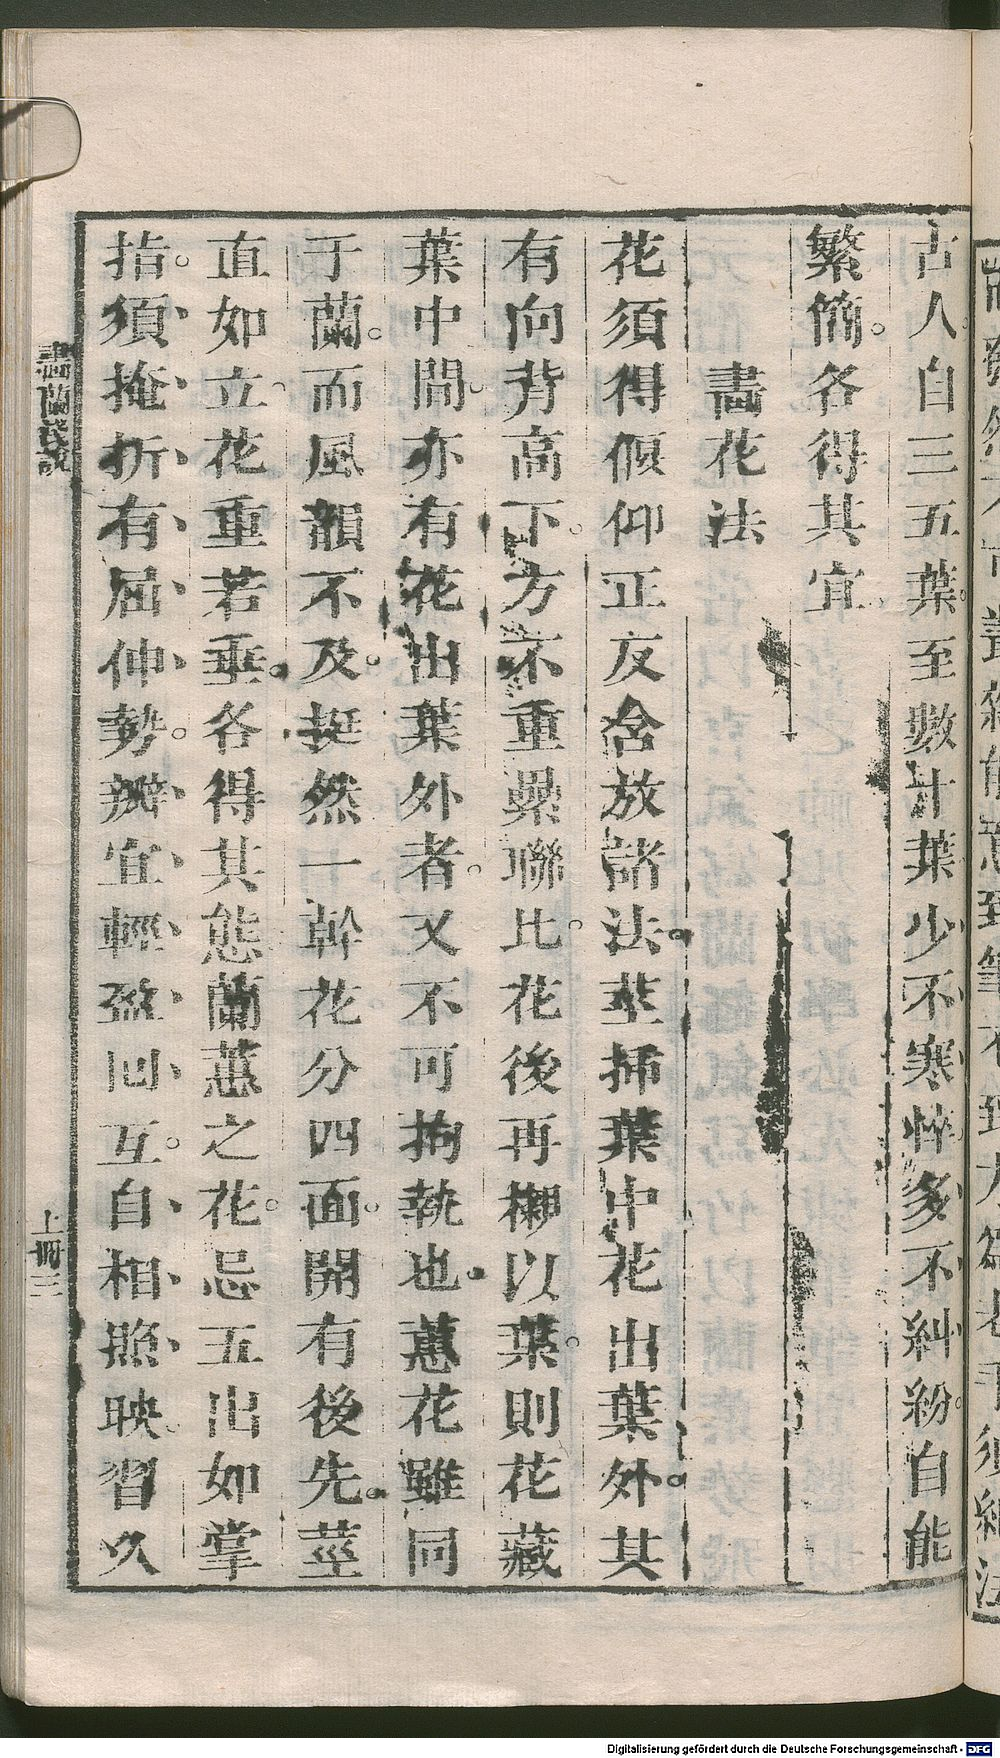 古人自三五葉至數十葉少不寒悴多不糾紛自能
繁簡各得其宜
畫花法
花須得偃仰正反含放諸法莖挿葉中花出葉外其
有向背高下方不重累聯比花後再襯以葉則花藏
葉中間亦有花出葉外者又不可拘執也蕙花雖同
于蘭而風韻不及挺然一幹花分四面開有後先莖
直如立花重若垂各得其態蘭蕙之花忌五出如掌
指須掩折有屈伸勢瓣宜輕盈回互自相照映習久
畫蘭淺說
上冊 三
Digitalisierung gefördert durch die Deutsche Forschungsgemeinschaft - DFG